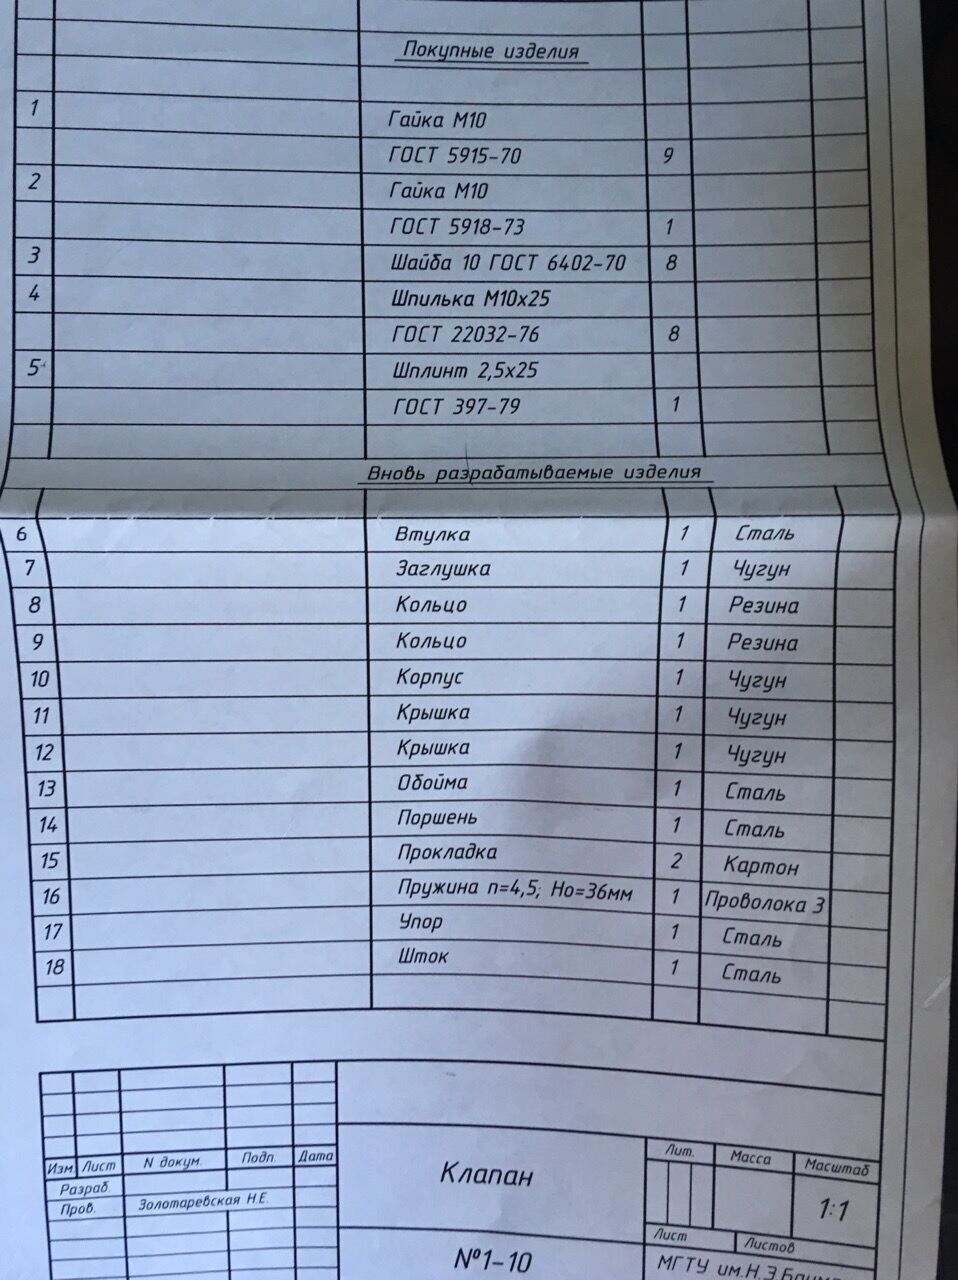 Покупные изделия
1 Гайка М10
ГОСТ 5915-70 9
2 Гайка М10
ГОСТ 5918-73 1
3 Шайба 10 ГОСТ 6402-70 8
4 Шпилька М10х25
ГОСТ 22032-76 8
5 Шплинт 2,5х25
ГОСТ 397-79 1
Вновь разрабатываемые изделия
6 Втулка 1 Сталь
7 Заглушка 1 Чугун
8 Кольцо 1 Резина
9 Кольцо 1 Резина
10 Корпус 1 Чугун
11 Крышка 1 Чугун
12 Крышка 1 Чугун
13 Обойма 1 Сталь
14 Поршень 1 Сталь
15 Прокладка 2 Картон
16 Пружина n=4,5; Но=36мм 1 Проволока 3
17 Упор 1 Сталь
18 Шток 1 Сталь
Изм. Лист N докум. Подп. Дата
Разраб.
Пров. Золотаревская Н.Е.
Клапан
№1-10
Лит. Масса Масштаб
1:1
Лист Листов
МГТУ им.Н.Э.